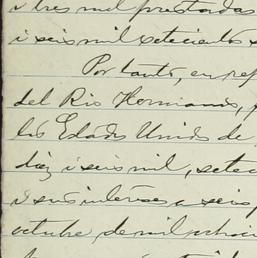 i tres mil prestadas
i seis mil setecientos
Por tanto, en
del Rio Hermanos,
los Estados Unidos de
diez i seis mil, sete
i sus intereses a seis
octubre, de mil ochoci